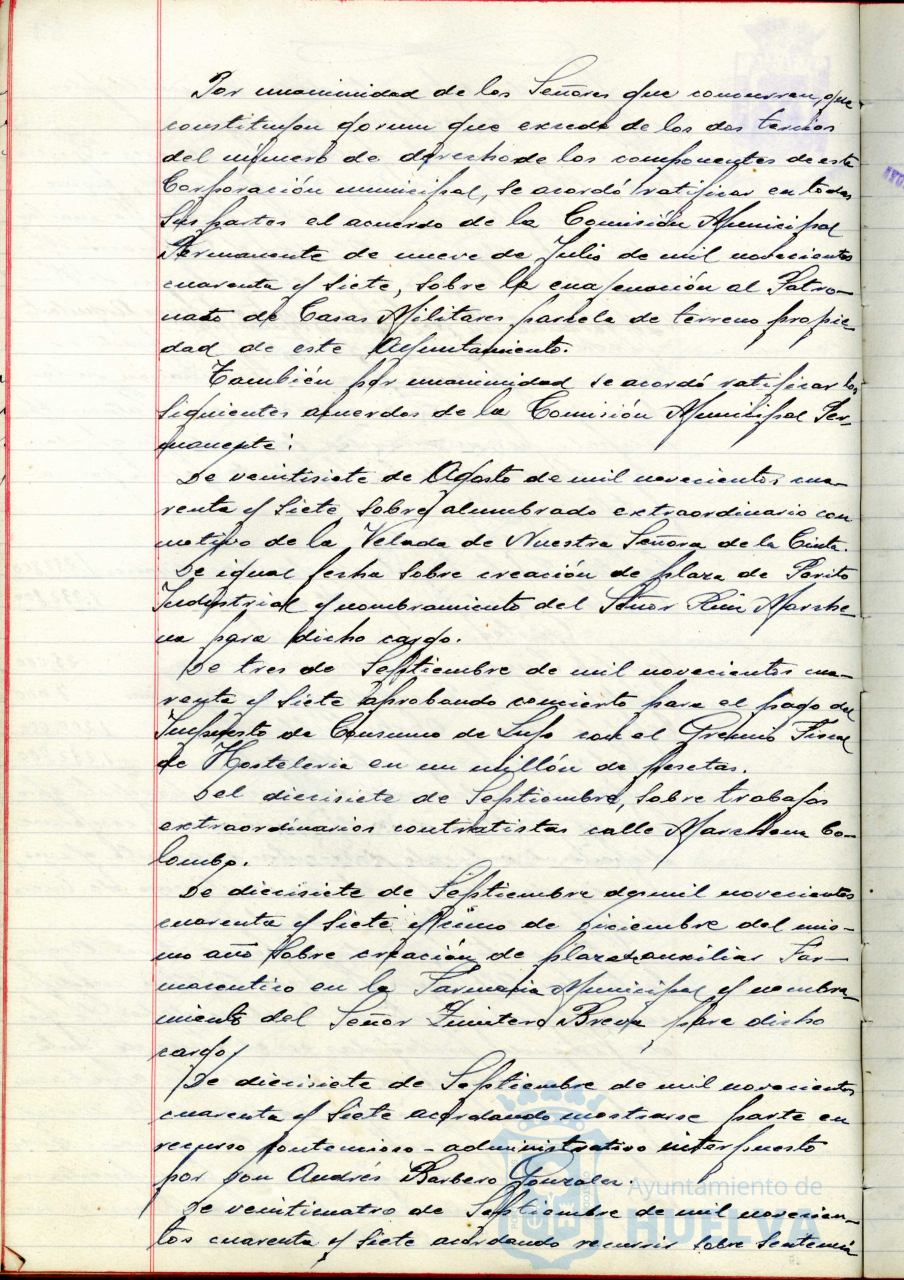 Por unanimidad de los Señores que concurren, que
constituyen qorum que excede de los dos tercios
del número de derecho de los componentes de esta
Corporación municipal, se acordó ratificar en todas
sus partes el acuerdo de la Comisión Municipal
Permanente de nueve de Julio de mil novecientos
cuarenta y siete, sobre la enajenación al Patro-
nato de Casas Militares parcela de terreno propie-
dad de este Ayuntamiento.
También por unanimidad se acordó ratificar los
siguientes acuerdos de la Comisión Municipal Per-
manente:
De veintisiete de Agosto de mil novecientos cua-
renta y siete sobre alumbrado extraordinario con
motivo de la Velada de Nuestra Señora de la Cinta.
De igual fecha sobre creación de plaza de Perito
Industrial y nombramiento del Señor Ruiz Marche-
na para dicho cargo.
De tres de Septiembre de mil novecientos cua-
renta y siete aprobando concierto para el pago del
Impuesto de Consumo de Lujo con el Gremio Fiscal
de Hosteleria en un millón de pesetas.
Del diecisiete de Septiembre, sobre trabajos
extraordinarios contratistas calle Marchena Co-
lombo.
De diecisiete de Septiembre de mil novecientos
cuarenta y siete y de diciembre del mis-
mo año sobre creación de plaza auxiliar Far-
maceutico en la Farmacia Municipal y nombra-
miento del Señor Quintero Breva para dicho
cargo.
De diecisiete de Septiembre de mil novecientos
cuarenta y siete acordando mostrarse parte en
recurso contencioso-administrativo interpuesto
por don Andrés Barbero Gonzalez.
De veinticuatro de Septiembre de mil novecien-
tos cuarenta y siete acordando recurrir sobre sentencia
Ayuntamiento de
HUELVA